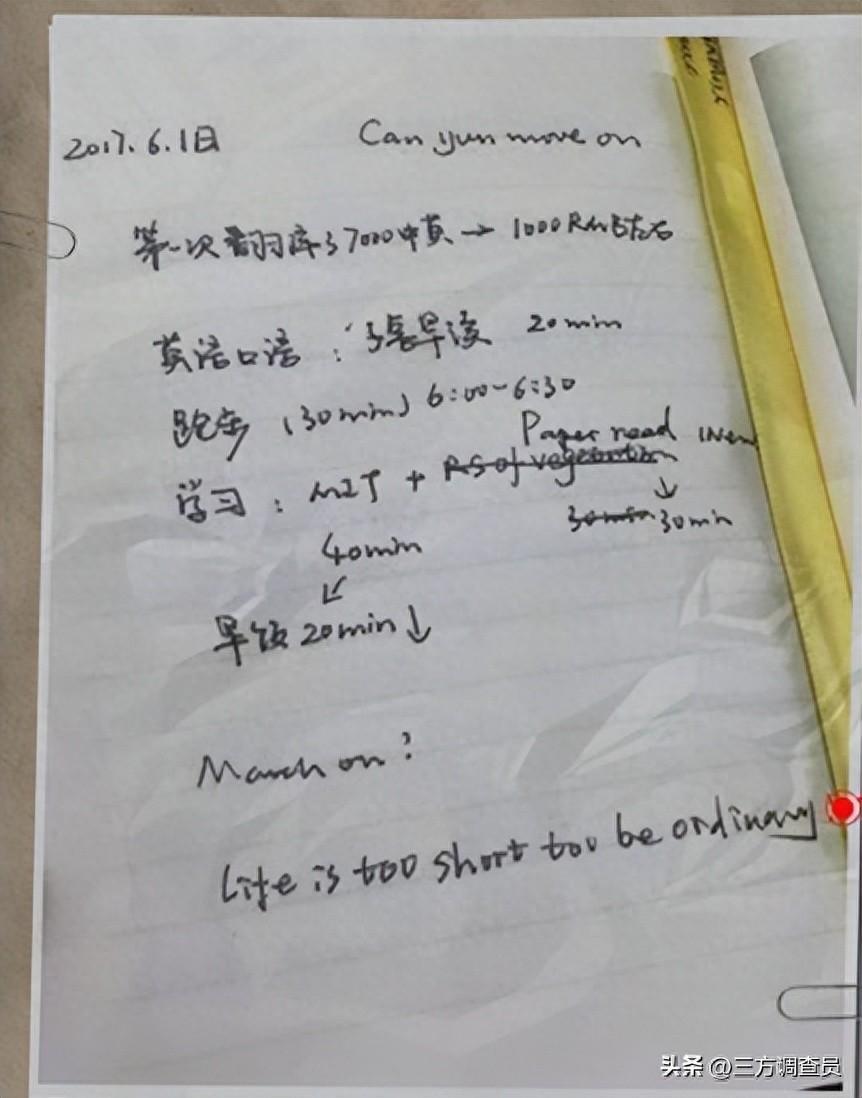 2017.6.1日 Can yun move on
第一次翻译了7000中英 → 1000RMB左右
英语口语：每晨早读 20min
跑步 (30min) 6:00-6:30
Paper read
学习：MIT + RS of vegetation
↓
30min 30min
40min
↙
早饭 20min ↓
March on?
Life is too short too be ordinary
头条 @三方调查员